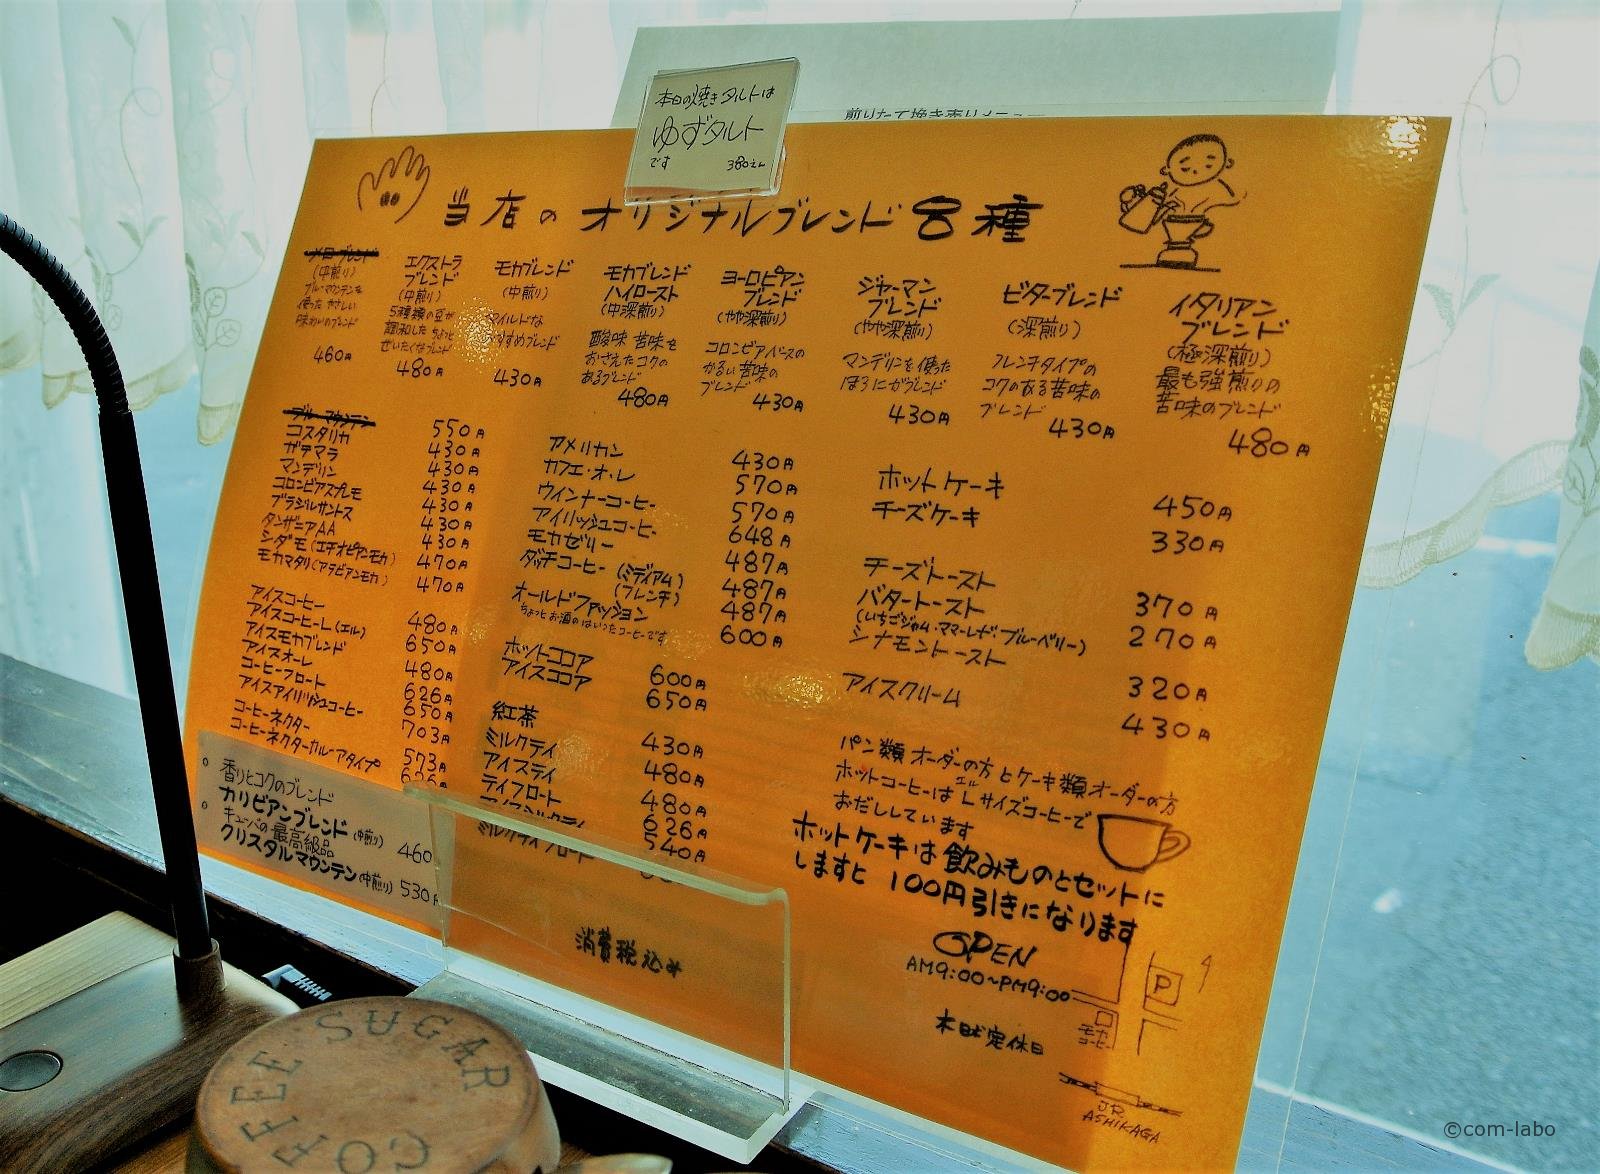 煎りたて挽き売りメニュー
本日の焼きタルトは
ゆずタルト
です 380えん
当店のオリジナルブレンド8種
メローブレンド
(中煎り)
ブルーマウンテンを
使った やさしい
味わりのブレンド
460円
エクストラ
ブレンド
(中煎り)
5種類の豆が
調和した ちょっと
ぜいたくなブレンド
480円
モカブレンド
(中煎り)
マイルドな
おすすめブレンド
430円
モカブレンド
ハイロースト
(中深煎り)
酸味 苦味を
おさえたコクの
あるブレンド
480円
ヨーロピアン
ブレンド
(やや深煎り)
コロンビアベースの
かるい苦味の
ブレンド
430円
ジャーマン
ブレンド
(やや深煎り)
マンデリンを使った
ほろにがブレンド
430円
ビターブレンド
(深煎り)
フレンチタイプの
コクのある苦味の
ブレンド
430円
イタリアン
ブレンド
(極深煎り)
最も強煎りの
苦味のブレンド
480円
ブルーマウンテン 550円
コスタリカ 430円
ガテマラ 430円
マンデリン 430円
コロンビアスプレモ 430円
ブラジルサントス 430円
タンザニアAA 430円
シダモ(エチオピアンモカ) 470円
モカマタリ(アラビアンモカ) 470円
アイスコーヒー 480円
アイスコーヒーL(エル) 650円
アイスモカブレンド 480円
アイスオーレ 626円
コーヒーフロート 650円
アイスアイリッシュコーヒー 703円
コーヒーネクター 573円
コーヒーネクターカルーアタイプ 626円
香りとコクのブレンド
カリビアンブレンド(中煎り) 460
キューバの最高級品
クリスタルマウンテン(中煎り) 530円
アメリカン 430円
カフェ・オ・レ 570円
ウインナーコーヒー 570円
アイリッシュコーヒー 648円
モカゼリー 487円
ダッチコーヒー (ミディアム) 487円
(フレンチ) 487円
オールドファッション 600円
ちょっとお酒のはいったコーヒーです
ホットココア 600円
アイスココア 650円
紅茶 430円
ミルクティ 480円
アイスティ 480円
ティフロート 626円
アイスミルクティ 540円
ミルクティフロート
消費税込み
ホットケーキ 450円
チーズケーキ 330円
チーズトースト 370円
バタートースト 270円
(いちごジャム・ママーレード・ブルーベリー)
シナモントースト 320円
アイスクリーム 430円
パン類オーダーの方とケーキ類オーダーの方
ホットコーヒーは Lサイズコーヒーで
エル
おだししています
ホットケーキは飲みものとセットに
しますと 100円引きになります
OPEN
AM9:00~PM9:00
木曜定休日
P
モカ
コーヒー
JR
ASHIKAGA
COFFEE SUGAR
©com-labo